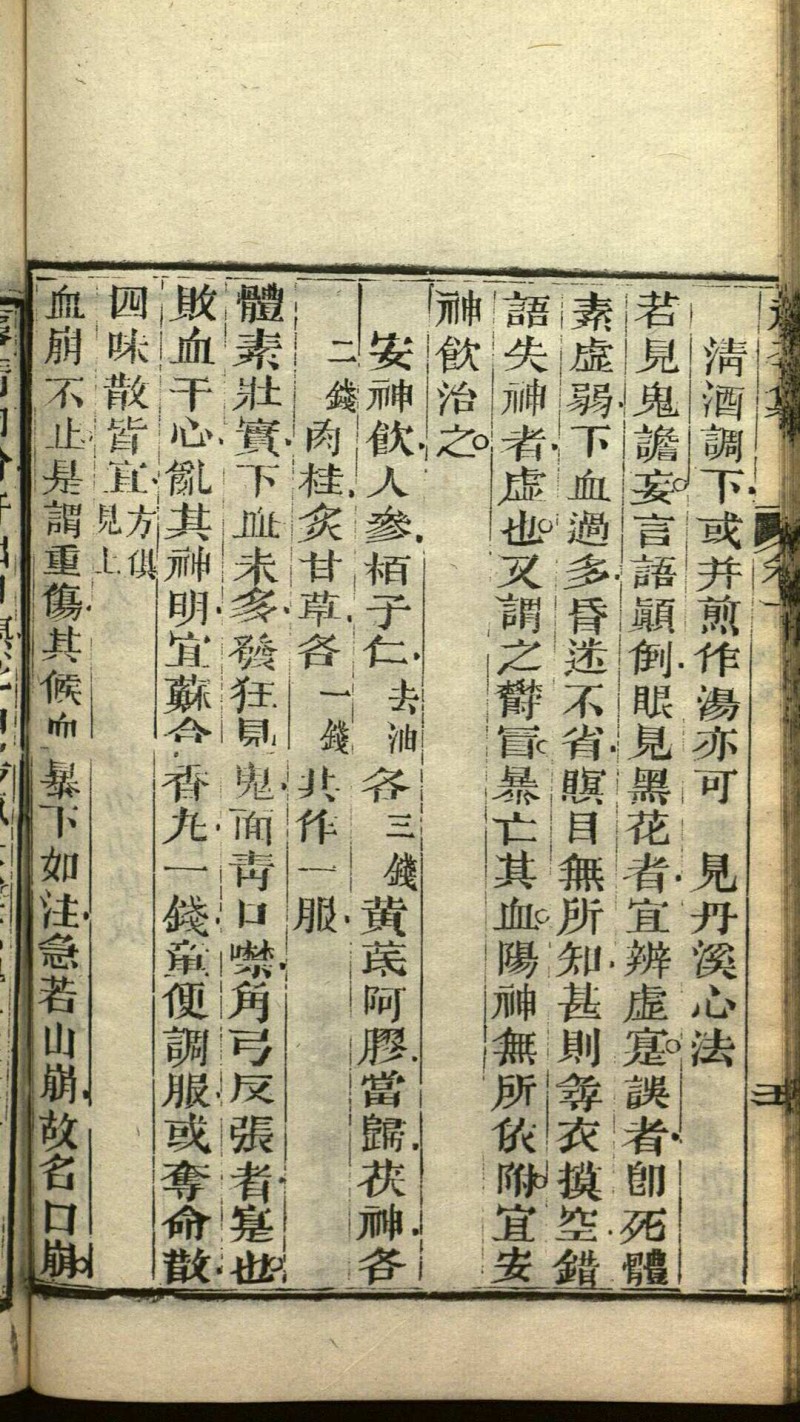 清酒調下或并煎作湯亦可 見丹溪心法
若見鬼譫妄言語顚倒眼見黑花者宜辨虛寔誤者卽死體
素虛弱下血過多昏迷不省瞑目無所知甚則尋衣摸空錯
語失神者虛也又謂之欝冒暴亡其血陽神無所依附宜安
神飲治之
安神飲人參栢子仁去油各三錢黃茋阿膠當歸茯神各
二錢肉桂炙甘草各一錢共作一服
體素壯實下血未多發狂見鬼面靑口噤角弓反張者寔也
敗血干心亂其神明宜蘇合香丸一錢童便調服或奪命散
四味散皆宜方俱見上
血崩不止是謂重傷其候血暴下如注急若山崩故名曰崩
三